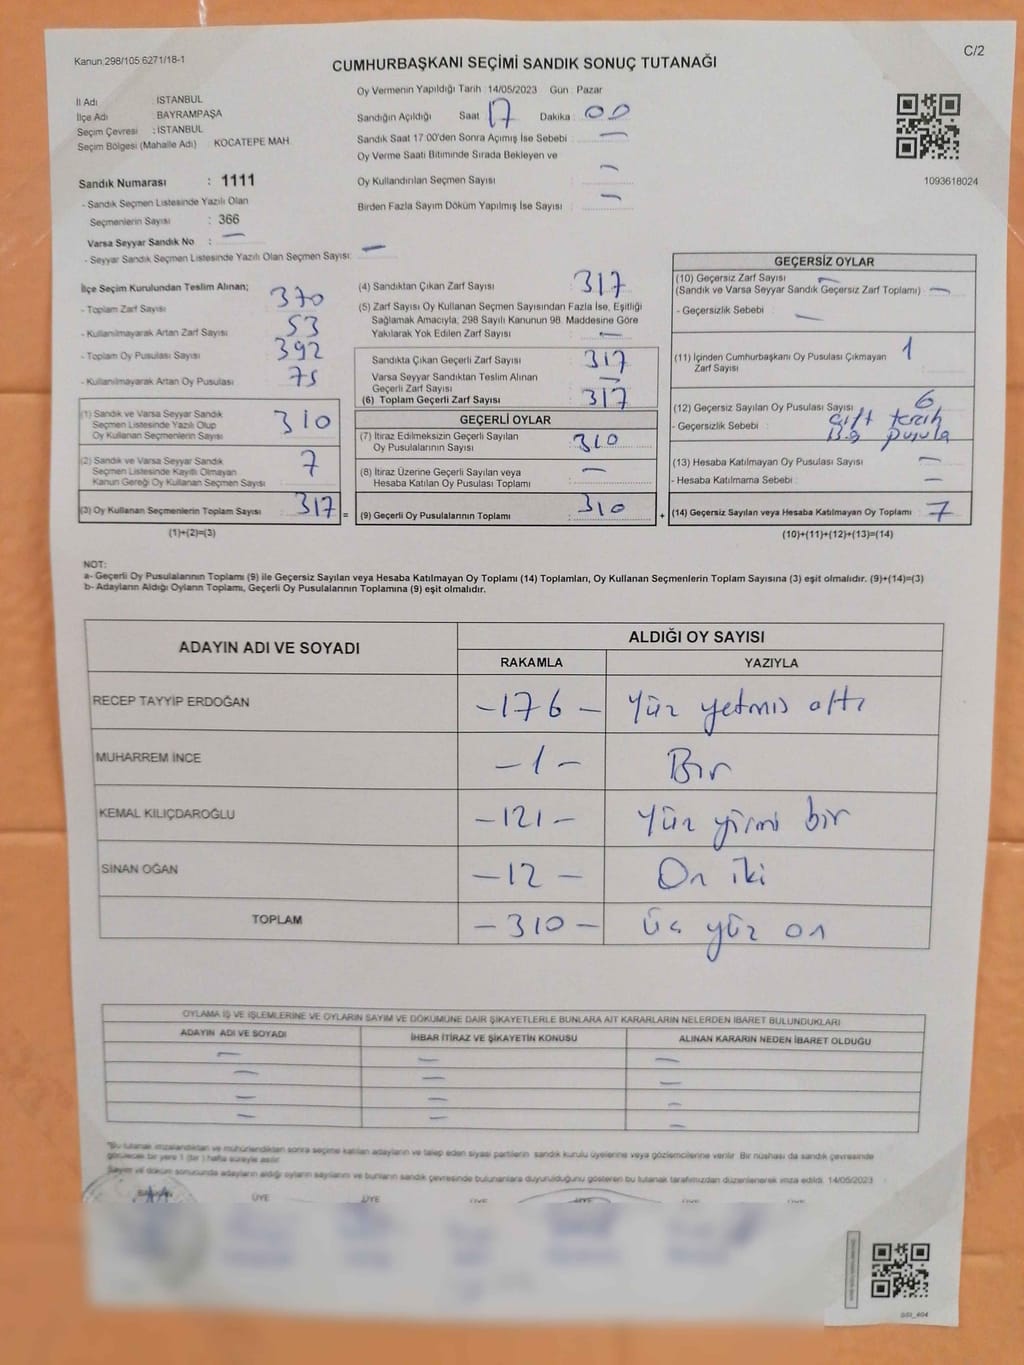 Kanun:298/105 6271/18-1
CUMHURBAŞKANI SEÇİMİ SANDIK SONUÇ TUTANAĞI
C/2
İl Adı : İSTANBUL
İlçe Adı : BAYRAMPAŞA
Seçim Çevresi : İSTANBUL
Seçim Bölgesi (Mahalle Adı) KOCATEPE MAH.
Sandık Numarası : 1111
- Sandık Seçmen Listesinde Yazılı Olan
Seçmenlerin Sayısı : 366
Varsa Seyyar Sandık No : —
- Seyyar Sandık Seçmen Listesinde Yazılı Olan Seçmen Sayısı: —
Oy Vermenin Yapıldığı Tarih : 14/05/2023 Gün : Pazar
Sandığın Açıldığı Saat 17 Dakika : 00
Sandık Saat 17:00'den Sonra Açımış İse Sebebi : —
Oy Verme Saati Bitiminde Sırada Bekleyen ve
Oy Kullandırılan Seçmen Sayısı : —
Birden Fazla Sayım Döküm Yapılmış İse Sayısı : —
1093618024
İlçe Seçim Kurulundan Teslim Alınan;
- Toplam Zarf Sayısı : 370
- Kullanılmayarak Artan Zarf Sayısı : 53
- Toplam Oy Pusulası Sayısı : 392
- Kullanılmayarak Artan Oy Pusulası : 75
(1) Sandık ve Varsa Seyyar Sandık
Seçmen Listesinde Yazılı Olup
Oy Kullanan Seçmenlerin Sayısı : 310
(2) Sandık ve Varsa Seyyar Sandık
Seçmen Listesinde Kayıtlı Olmayan
Kanun Gereği Oy Kullanan Seçmen Sayısı : 7
(3) Oy Kullanan Seçmenlerin Toplam Sayısı : 317 =
(1)+(2)=(3)
(4) Sandıktan Çıkan Zarf Sayısı : 317
(5) Zarf Sayısı Oy Kullanan Seçmen Sayısından Fazla İse, Eşitliği
Sağlamak Amacıyla; 298 Sayılı Kanunun 98. Maddesine Göre
Yakılarak Yok Edilen Zarf Sayısı : —
Sandıkta Çıkan Geçerli Zarf Sayısı : 317
Varsa Seyyar Sandıktan Teslim Alınan
Geçerli Zarf Sayısı : —
(6) Toplam Geçerli Zarf Sayısı : 317
GEÇERLİ OYLAR
(7) İtiraz Edilmeksizin Geçerli Sayılan
Oy Pusulalarının Sayısı : 310
(8) İtiraz Üzerine Geçerli Sayılan veya
Hesaba Katılan Oy Pusulası Toplamı : —
(9) Geçerli Oy Pusulalarının Toplamı : 310 +
GEÇERSİZ OYLAR
(10) Geçersiz Zarf Sayısı : —
(Sandık ve Varsa Seyyar Sandık Geçersiz Zarf Toplamı) —
- Geçersizlik Sebebi : —
(11) İçinden Cumhurbaşkanı Oy Pusulası Çıkmayan
Zarf Sayısı : 1
(12) Geçersiz Sayılan Oy Pusulası Sayısı : 6
- Geçersizlik Sebebi : çift tercih
pusula
(13) Hesaba Katılmayan Oy Pusulası Sayısı : —
- Hesaba Katılmama Sebebi : —
(14) Geçersiz Sayılan veya Hesaba Katılmayan Oy Toplamı : 7
(10)+(11)+(12)+(13)=(14)
NOT:
a- Geçerli Oy Pusulalarının Toplamı (9) ile Geçersiz Sayılan veya Hesaba Katılmayan Oy Toplamı (14) Toplamları, Oy Kullanan Seçmenlerin Toplam Sayısına (3) eşit olmalıdır. (9)+(14)=(3)
b- Adayların Aldığı Oyların Toplamı, Geçerli Oy Pusulalarının Toplamına (9) eşit olmalıdır.
ADAYIN ADI VE SOYADI ALDIĞI OY SAYISI
RAKAMLA YAZIYLA
RECEP TAYYİP ERDOĞAN -176- Yüz yetmiş altı
MUHARREM İNCE -1- Bir
KEMAL KILIÇDAROĞLU -121- Yüz yirmi bir
SİNAN OĞAN -12- On iki
TOPLAM -310- Üç yüz on
OYLAMA İŞ VE İŞLEMLERİNE VE OYLARIN SAYIM VE DÖKÜMÜNE DAİR ŞİKAYETLERLE BUNLARA AİT KARARLARIN NELERDEN İBARET BULUNDUKLARI
ADAYIN ADI VE SOYADI İHBAR İTİRAZ VE ŞİKAYETİN KONUSU ALINAN KARARIN NEDEN İBARET OLDUĞU
— — —
— — —
— — —
— — —
*Bu tutanak imzalandıktan ve mühürlendikten sonra seçime katılan adayların ve talep eden siyasi partilerin sandık kurulu üyelerine veya gözlemcilerine verilir. Bir nüshası da sandık çevresinde
görülecek bir yere 1 (bir) hafta süreyle asılır.
Sayım ve döküm sonucunda adayların aldığı oyların sayılarını ve bunların sandık çevresinde bulunanlara duyurulduğunu gösteren bu tutanak tarafımızdan düzenlenerek imza edildi. 14/05/2023
BAŞKAN ÜYE ÜYE ÜYE ÜYE ÜYE ÜYE